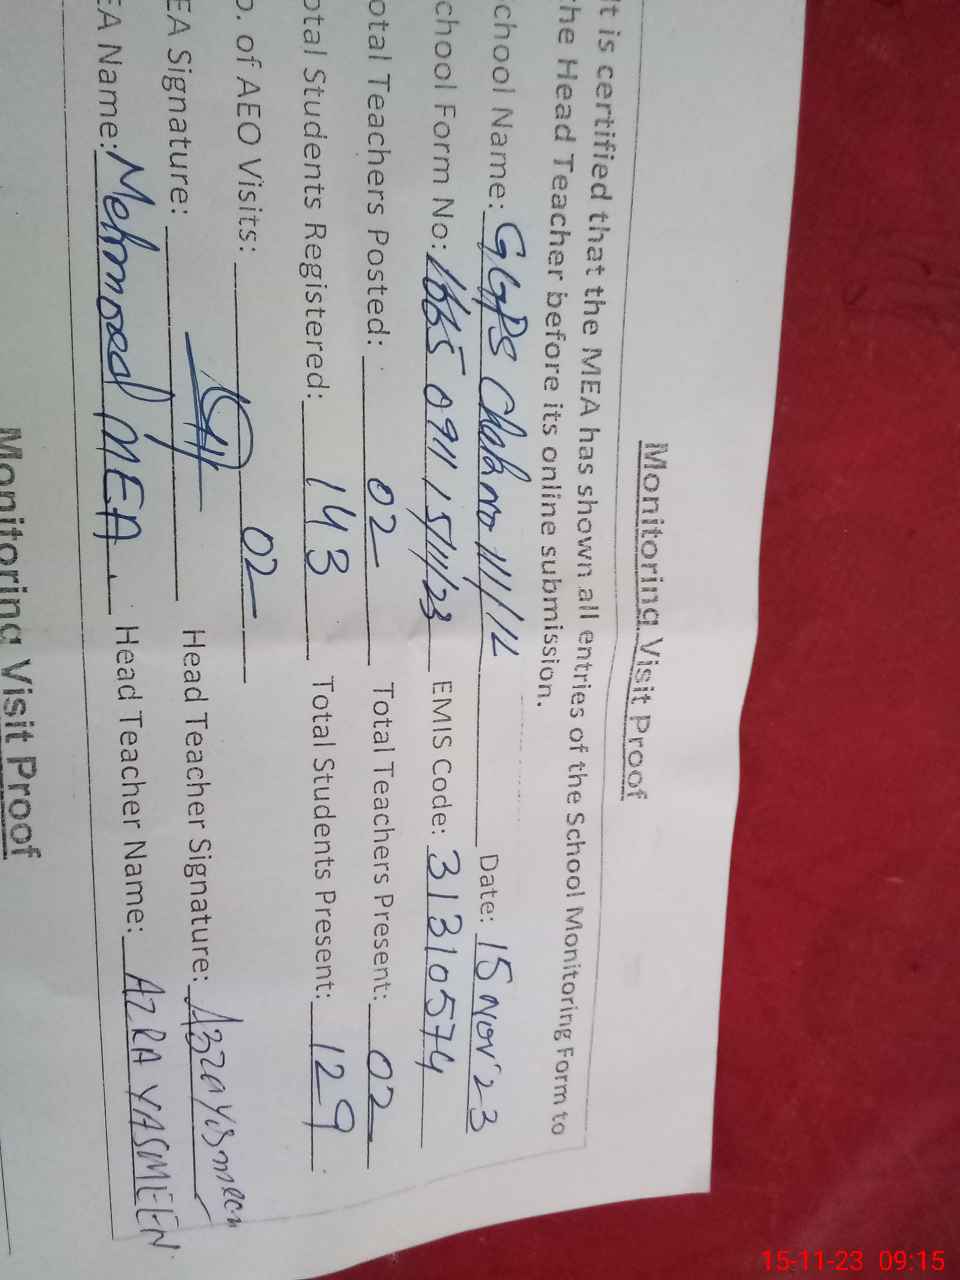 Monitoring Visit Proof
It is certified that the MEA has shown all entries of the School Monitoring Form to
he Head Teacher before its online submission.
chool Name: GGPS Chak no 111/1L Date: 15 Nov'23
chool Form No: 1665 0911 15/11/23 EMIS Code: 31310574
otal Teachers Posted: 02 Total Teachers Present: 02
otal Students Registered: 143 Total Students Present: 129
o. of AEO Visits: 02
EA Signature: Head Teacher Signature: Azra Yasmeen
EA Name: Mehmood MEA. Head Teacher Name: AZRA YASMEEN
Monitoring Visit Proof
15-11-23 09:15